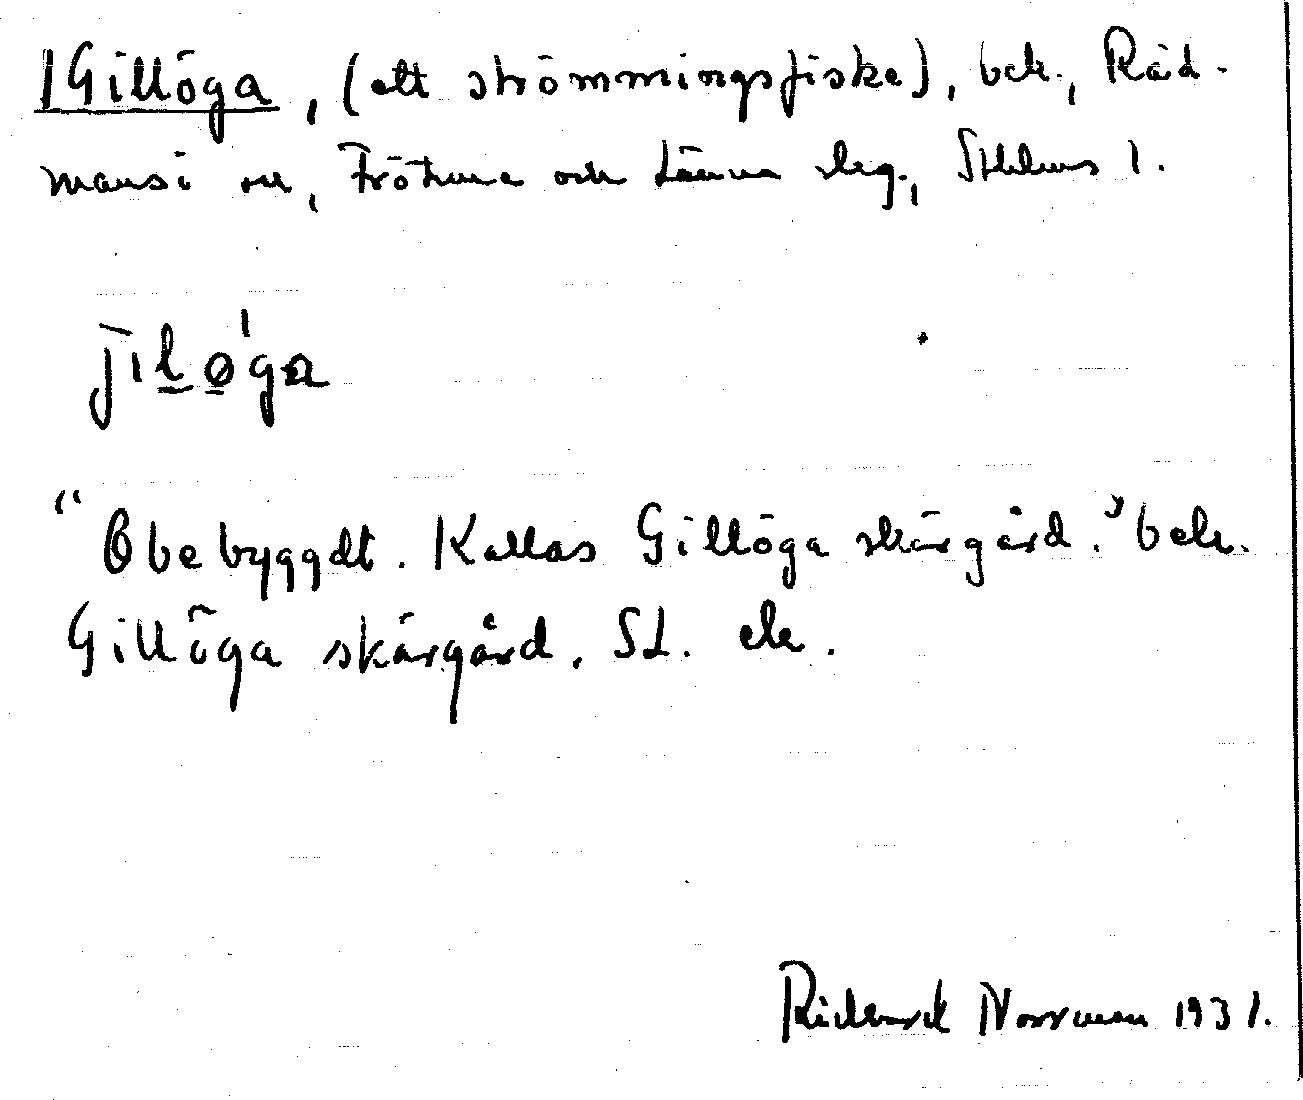 1 Gillöga, (ett strömmingsfiske), bek., Råd-
mansö sn, Frötuna och Länna slg., Sthlms l.
jilø'ga
"Obebyggdt. Kallas Gillöga skärgård." bek.
Gillöga skärgård. SL. ek.
Richard Norrman 1931.